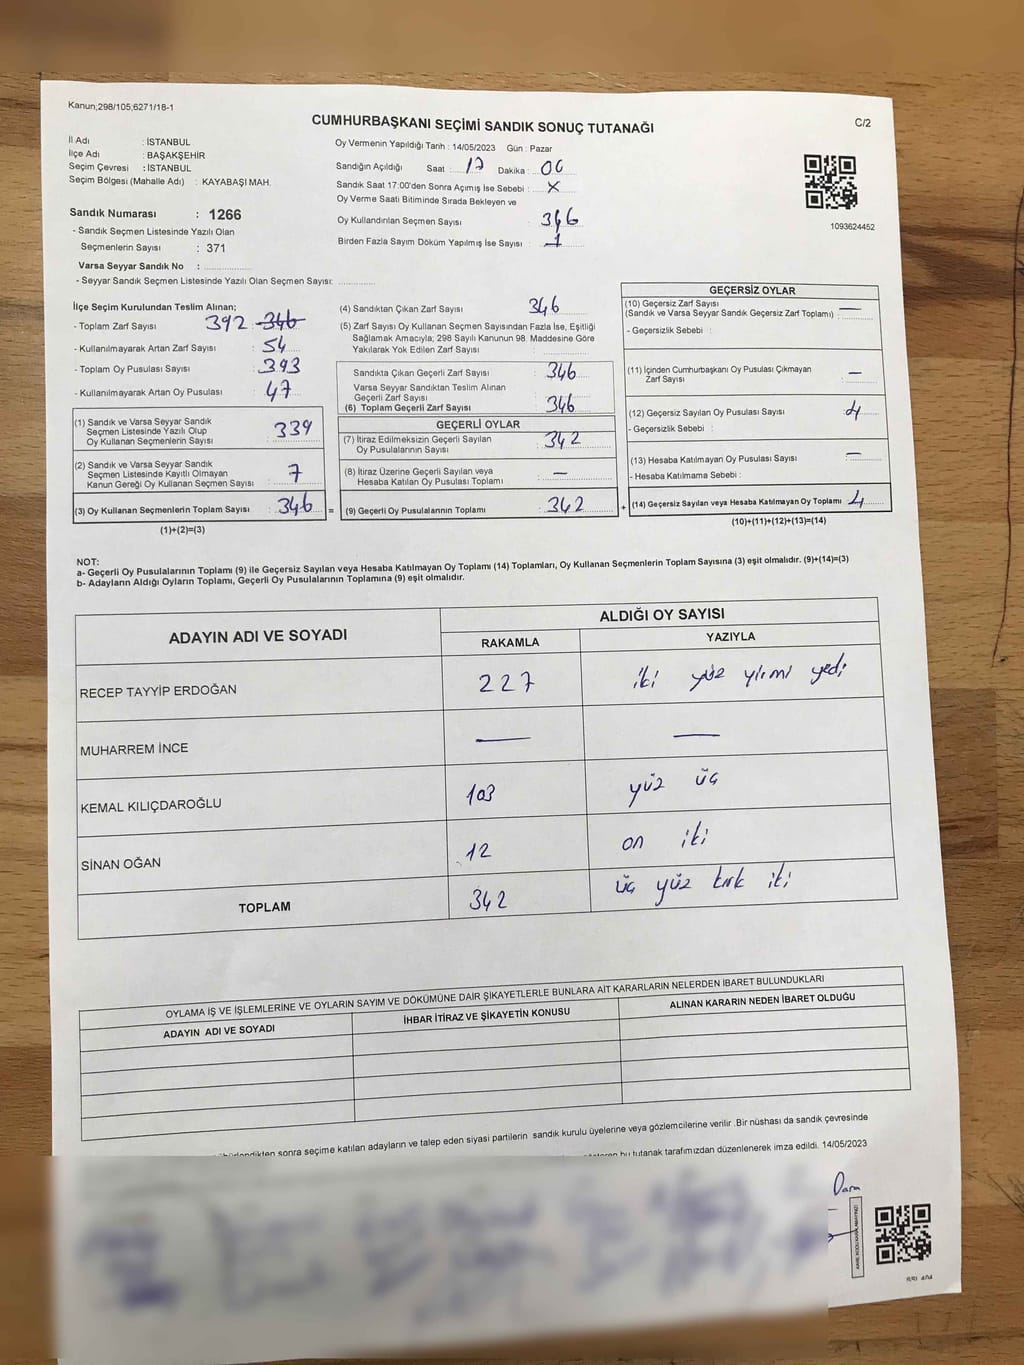 Kanun;298/105,6271/18-1
CUMHURBAŞKANI SEÇİMİ SANDIK SONUÇ TUTANAĞI
C/2
İl Adı : İSTANBUL
İlçe Adı : BAŞAKŞEHİR
Seçim Çevresi : İSTANBUL
Seçim Bölgesi (Mahalle Adı) : KAYABAŞI MAH.
Sandık Numarası : 1266
- Sandık Seçmen Listesinde Yazılı Olan
Seçmenlerin Sayısı : 371
Varsa Seyyar Sandık No :
- Seyyar Sandık Seçmen Listesinde Yazılı Olan Seçmen Sayısı:
Oy Vermenin Yapıldığı Tarih : 14/05/2023 Gün : Pazar
Sandığın Açıldığı Saat : 17 Dakika : 00
Sandık Saat 17:00'den Sonra Açımış İse Sebebi : X
Oy Verme Saati Bitiminde Sırada Bekleyen ve
Oy Kullandırılan Seçmen Sayısı : 346
Birden Fazla Sayım Döküm Yapılmış İse Sayısı : 1
1093624452
İlçe Seçim Kurulundan Teslim Alınan;
- Toplam Zarf Sayısı 392 : 346
- Kullanılmayarak Artan Zarf Sayısı : 54
- Toplam Oy Pusulası Sayısı : 393
- Kullanılmayarak Artan Oy Pusulası : 47
(1) Sandık ve Varsa Seyyar Sandık
Seçmen Listesinde Yazılı Olup
Oy Kullanan Seçmenlerin Sayısı : 339
(2) Sandık ve Varsa Seyyar Sandık
Seçmen Listesinde Kayıtlı Olmayan
Kanun Gereği Oy Kullanan Seçmen Sayısı : 7
(3) Oy Kullanan Seçmenlerin Toplam Sayısı : 346 =
(1)+(2)=(3)
(4) Sandıktan Çıkan Zarf Sayısı : 346
(5) Zarf Sayısı Oy Kullanan Seçmen Sayısından Fazla İse, Eşitliği
Sağlamak Amacıyla; 298 Sayılı Kanunun 98. Maddesine Göre
Yakılarak Yok Edilen Zarf Sayısı :
Sandıkta Çıkan Geçerli Zarf Sayısı : 346
Varsa Seyyar Sandıktan Teslim Alınan
Geçerli Zarf Sayısı :
(6) Toplam Geçerli Zarf Sayısı : 346
GEÇERLİ OYLAR
(7) İtiraz Edilmeksizin Geçerli Sayılan
Oy Pusulalarının Sayısı : 342
(8) İtiraz Üzerine Geçerli Sayılan veya
Hesaba Katılan Oy Pusulası Toplamı : —
(9) Geçerli Oy Pusulalarının Toplamı : 342 +
GEÇERSİZ OYLAR
(10) Geçersiz Zarf Sayısı
(Sandık ve Varsa Seyyar Sandık Geçersiz Zarf Toplamı) : —
- Geçersizlik Sebebi :
(11) İçinden Cumhurbaşkanı Oy Pusulası Çıkmayan
Zarf Sayısı : —
(12) Geçersiz Sayılan Oy Pusulası Sayısı : 4
- Geçersizlik Sebebi :
(13) Hesaba Katılmayan Oy Pusulası Sayısı : —
- Hesaba Katılmama Sebebi :
(14) Geçersiz Sayılan veya Hesaba Katılmayan Oy Toplamı : 4
(10)+(11)+(12)+(13)=(14)
NOT:
a- Geçerli Oy Pusulalarının Toplamı (9) ile Geçersiz Sayılan veya Hesaba Katılmayan Oy Toplamı (14) Toplamları, Oy Kullanan Seçmenlerin Toplam Sayısına (3) eşit olmalıdır. (9)+(14)=(3)
b- Adayların Aldığı Oyların Toplamı, Geçerli Oy Pusulalarının Toplamına (9) eşit olmalıdır.
ADAYIN ADI VE SOYADI
ALDIĞI OY SAYISI
RAKAMLA YAZIYLA
RECEP TAYYİP ERDOĞAN 227 iki yüz yirmi yedi
MUHARREM İNCE — —
KEMAL KILIÇDAROĞLU 103 yüz üç
SİNAN OĞAN 12 on iki
TOPLAM 342 üç yüz kırk iki
OYLAMA İŞ VE İŞLEMLERİNE VE OYLARIN SAYIM VE DÖKÜMÜNE DAİR ŞİKAYETLERLE BUNLARA AİT KARARLARIN NELERDEN İBARET BULUNDUKLARI
ADAYIN ADI VE SOYADI İHBAR İTİRAZ VE ŞİKAYETİN KONUSU ALINAN KARARIN NEDEN İBARET OLDUĞU
sonra seçime katılan adayların ve talep eden siyasi partilerin sandık kurulu üyelerine veya gözlemcilerine verilir .Bir nüshası da sandık çevresinde
bu tutanak tarafımızdan düzenlenerek imza edildi. 14/05/2023